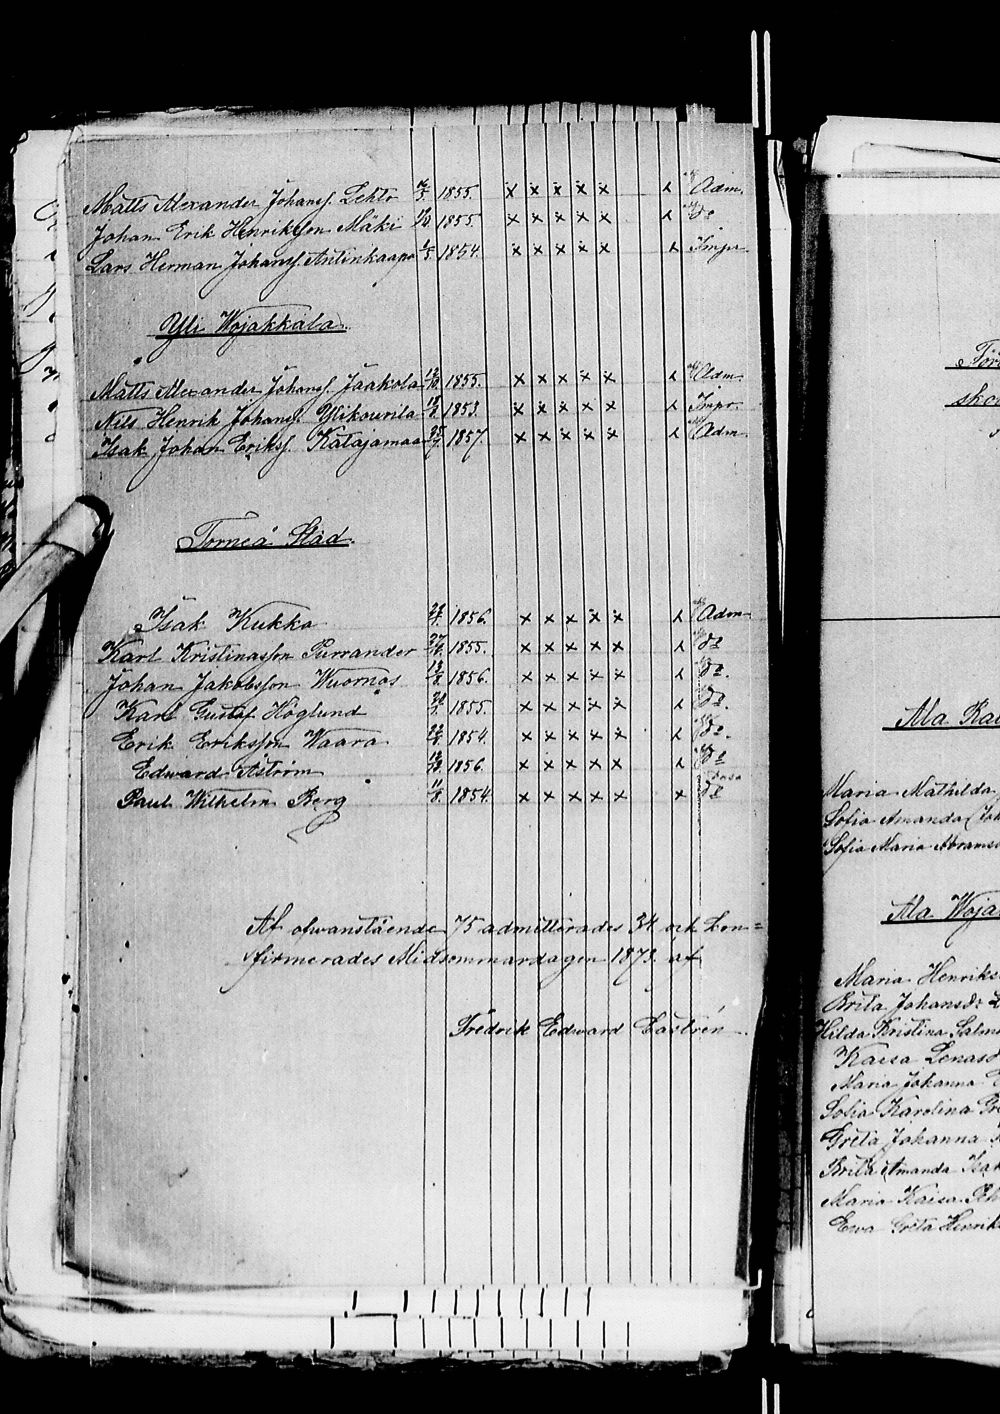 Matts Alexander Johanss. Lehto 1855. x x x x x Adm.
Johan Erik Henriksson Mäki 1855. x x x x x do
Lars Herman Johanss. Antinkaapo 1854. x x x x x Impr
Yli Wojakkala.
Matts Alexander Johanss. Jaakola 1855. x x x x x Adm
Nils Henrik Johanss. Ylikourila 1853. x x x x x Impr.
Isak Johan Erikss. Katajamaa 1857. x x x x x Adm
Torneå Stad.
Isak Kukko 1856. x x x x x Adm
Karl Kristinasson Purrander 1855. x x x x x do
Johan Jakobsson Wuornos 1856. x x x x x do.
Karl Gustaf Höglund 1855. x x x x x do.
Erik Eriksson Waara 1854. x x x x x do.
Edward Åström 1856. x x x x x do
Paul Wilhelm Berg 11/8 1854. x x x x x x do
Af ofvanstående 75 admitterades 34 och Con=
firmerades Midsommardagen 1873. af
Fredrik Edward Castrén.
Ala
Maria Mathilda
Sofia Amanda Joh
Sofia Maria Abrams
Ala Woja
Maria Henriks
Brita Johansdr
Hilda Kristina Salm
Kaisa Lenas
Maria Johanna
Sofia Karolina
Greta Johanna
Brita Amanda Isak
Maria Kaisa
Ewa Greta Henrik